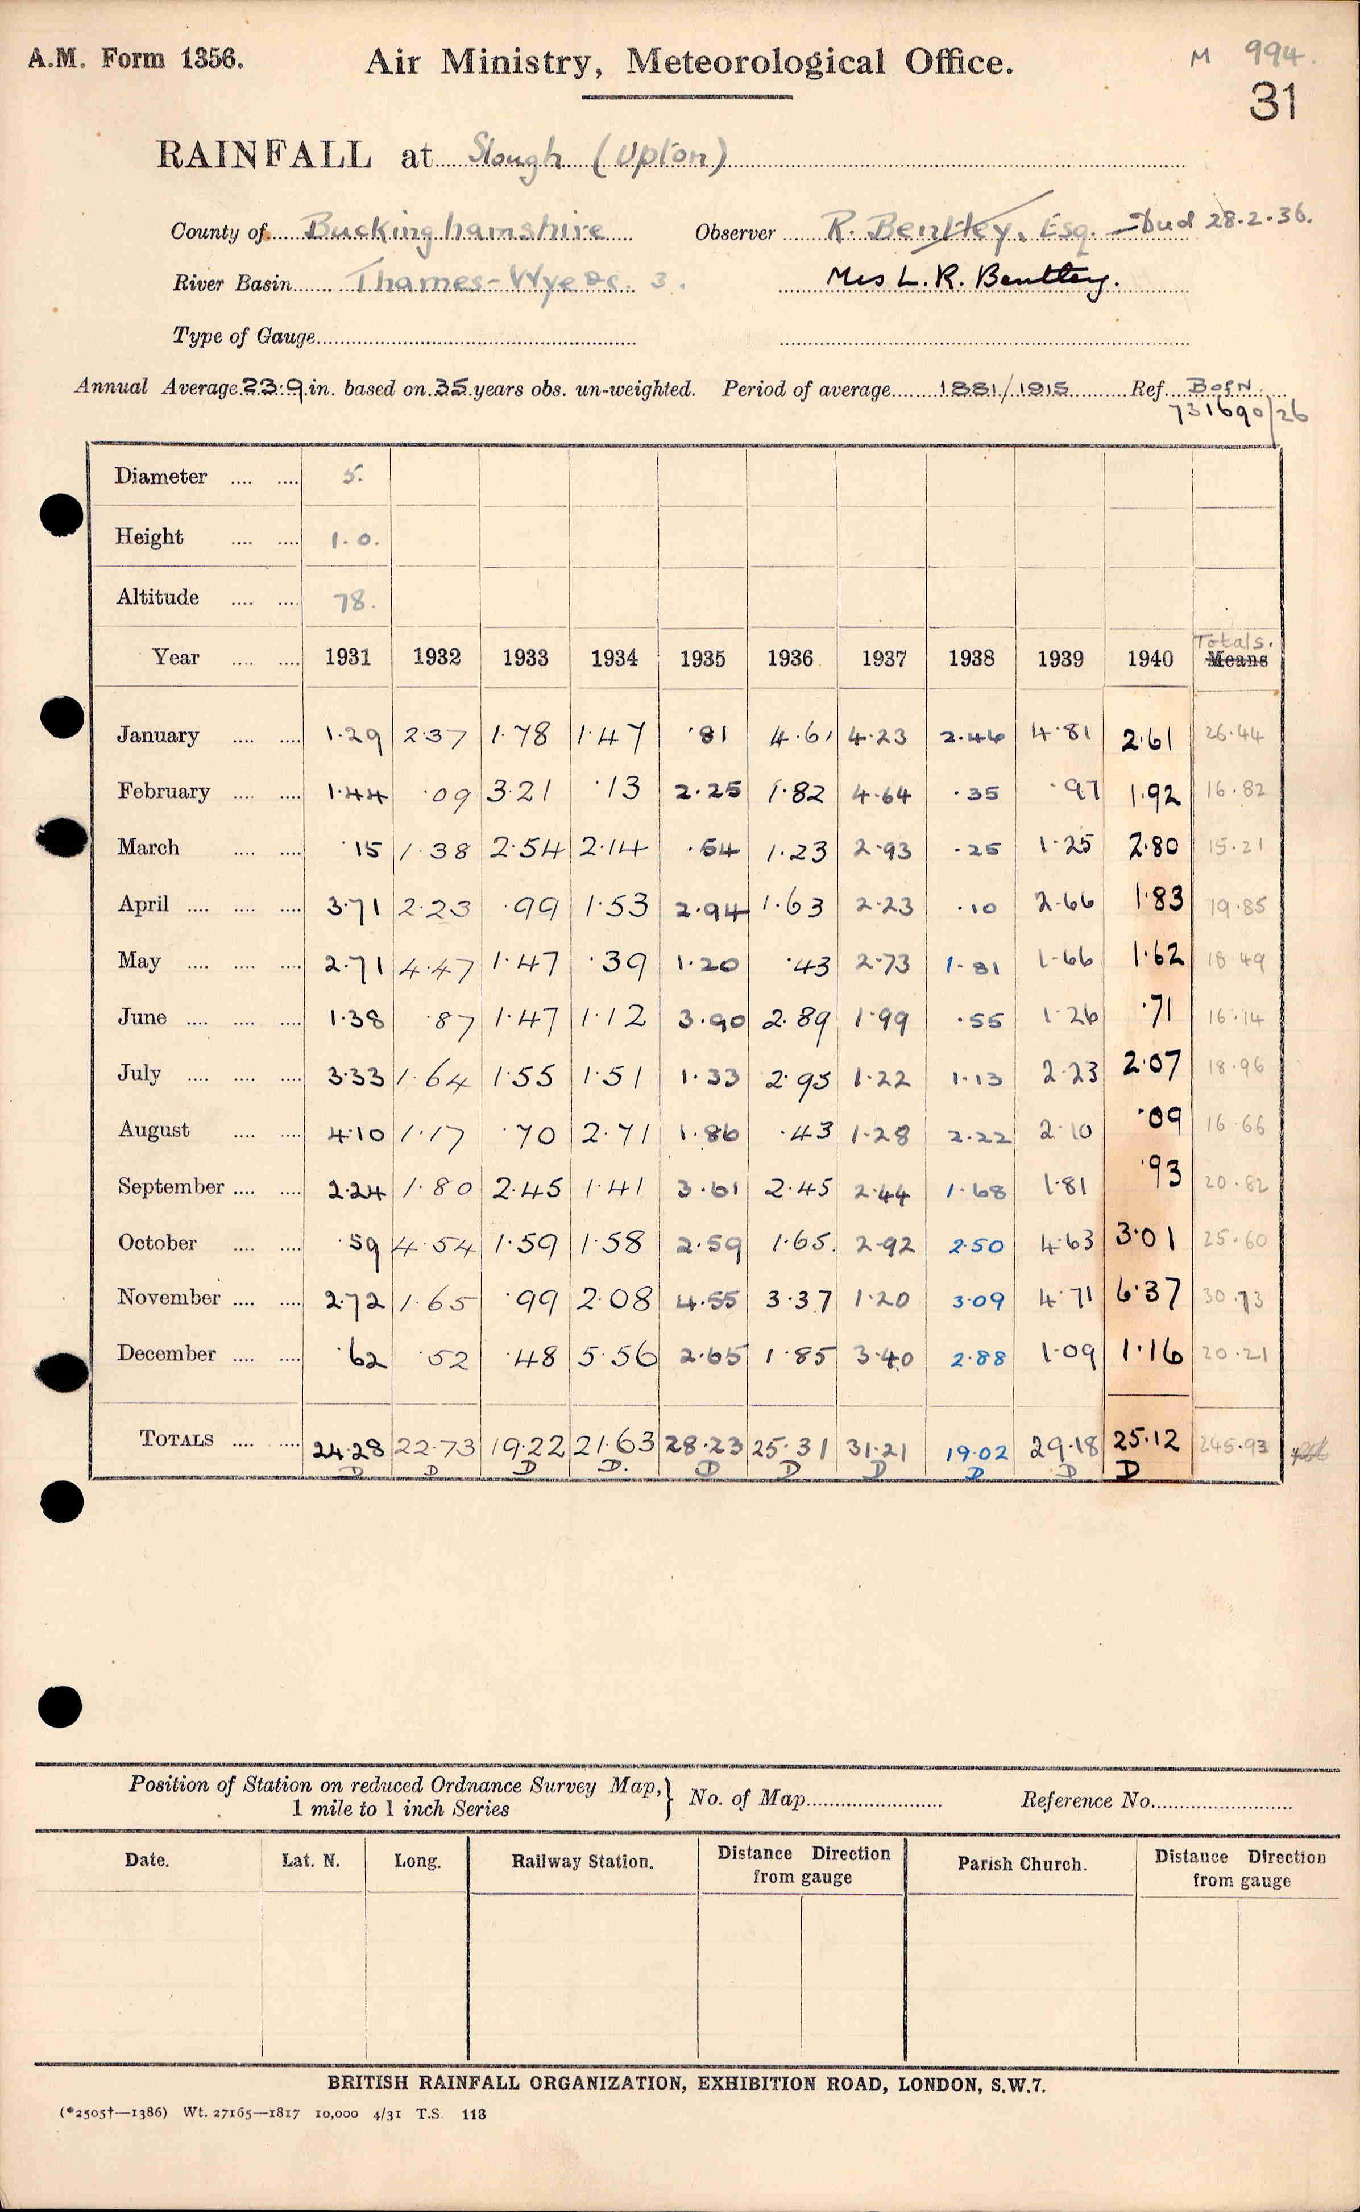 A.M. Form 1356.
Air Ministry, Meteorological Office.
M 994.
31
RAINFALL at Slough (Upton)
County of Buckinghamshire Observer R. Bentley, Esq. - Died 28.2.36.
River Basin Thames-Wye &c. 3. Mrs L. R. Bentley.
Type of Gauge
Annual Average 23.9 in. based on 35 years obs. un-weighted. Period of average 1881/1915 Ref. BofN
731690/26
Diameter 5.
Height 1.0.
Altitude 78.
Totals.
Year 1931 1932 1933 1934 1935 1936 1937 1938 1939 1940 Means
January 1.29 2.37 1.78 1.47 .81 4.61 4.23 2.46 4.81 2.61 26.44
February 1.44 .09 3.21 .13 2.25 1.82 4.64 .35 .97 1.92 16.82
March .15 1.38 2.54 2.14 .54 1.23 2.93 .25 1.25 2.80 15.21
April 3.71 2.23 .99 1.53 2.94 1.63 2.23 .10 2.66 1.83 19.85
May 2.71 4.47 1.47 .39 1.20 .43 2.73 1.81 1.66 1.62 18.49
June 1.38 .87 1.47 1.12 3.90 2.89 1.99 .55 1.26 .71 16.14
July 3.33 1.64 1.55 1.51 1.33 2.95 1.22 1.13 2.23 2.07 18.96
August 4.10 1.17 .70 2.71 1.86 .43 1.28 2.22 2.10 .09 16.66
September 2.24 1.80 2.45 1.41 3.61 2.45 2.44 1.68 1.81 .93 20.82
October .59 4.54 1.59 1.58 2.59 1.65. 2.92 2.50 4.63 3.01 25.60
November 2.72 1.65 .99 2.08 4.55 3.37 1.20 3.09 4.71 6.37 30.73
December .62 .52 .48 5.56 2.65 1.85 3.40 2.88 1.09 1.16 20.21
TOTALS 24.28 22.73 19.22 21.63 28.23 25.31 31.21 19.02 29.18 25.12 245.93
D D D D. D D D D D D
Position of Station on reduced Ordnance Survey Map, } No. of Map Reference No.
1 mile to 1 inch Series
Date. Lat. N. Long. Railway Station. Distance Direction from gauge Parish Church. Distance Direction from gauge
BRITISH RAINFALL ORGANIZATION, EXHIBITION ROAD, LONDON, S.W.7.
(*2505†—1386) Wt. 27165—1817 10,000 4/31 T.S. 118